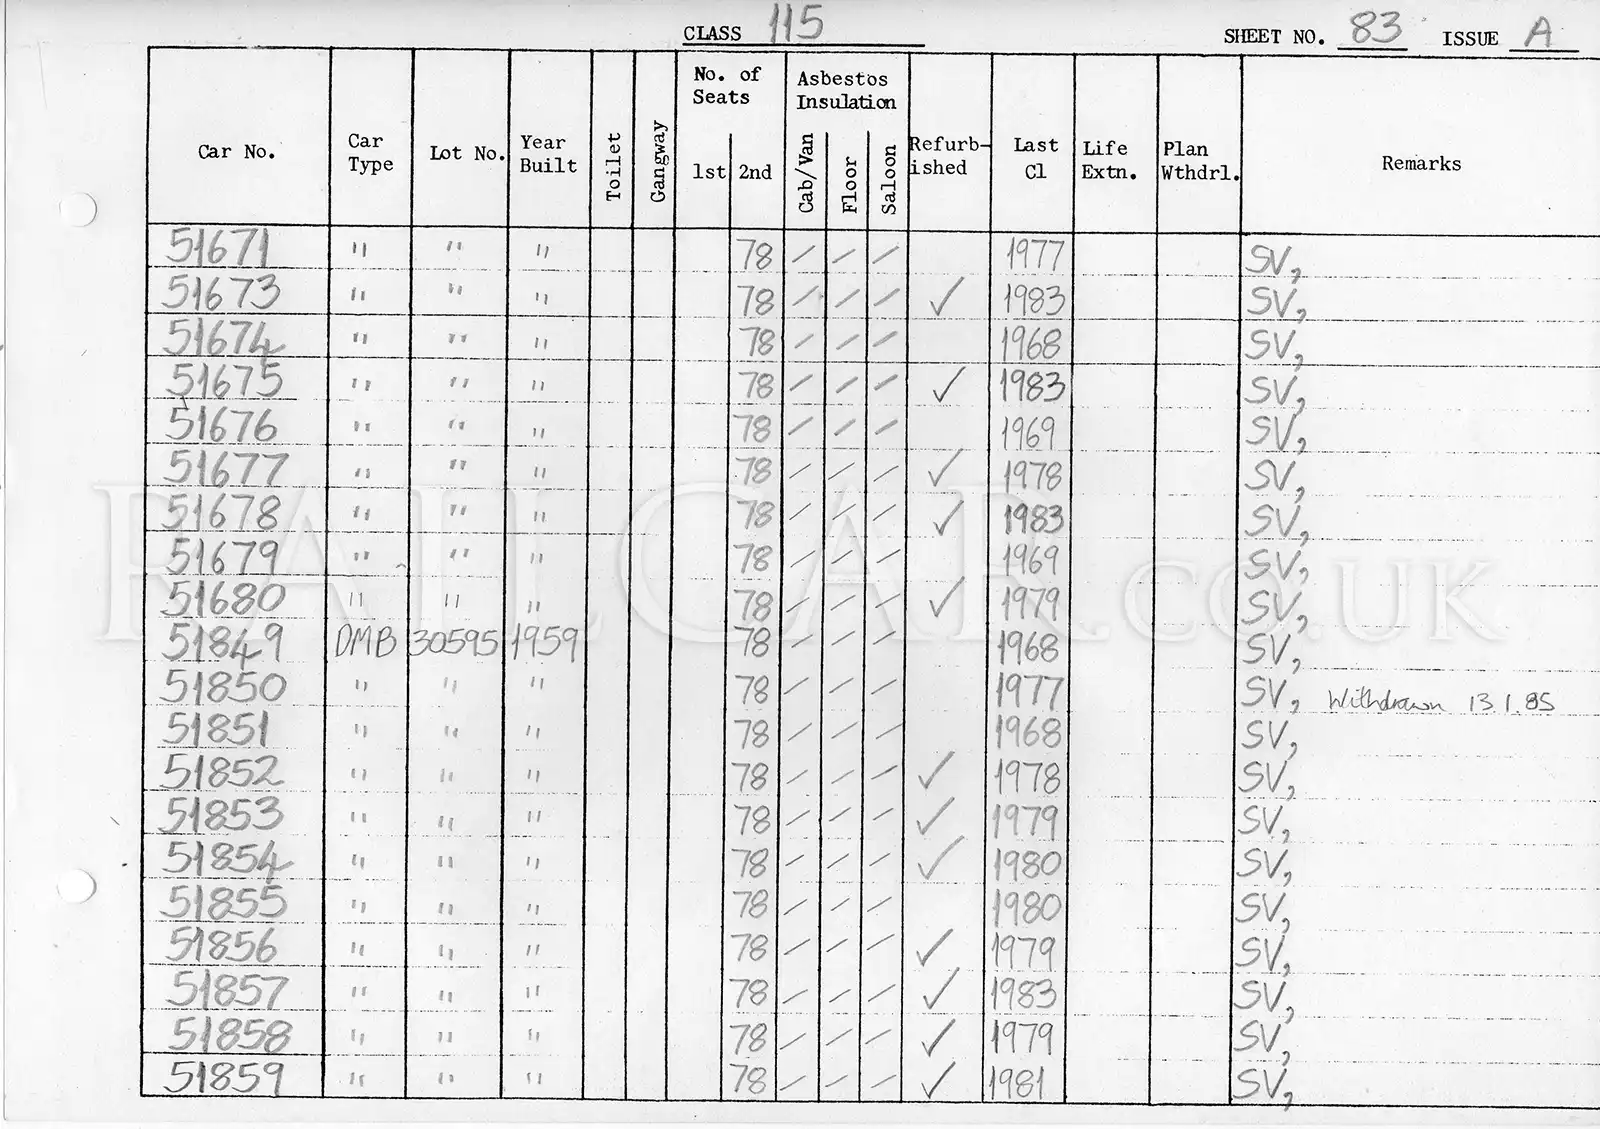 CLASS 115 SHEET NO. 83 ISSUE A
Car No. Car Type Lot No. Year Built Toilet Gangway No. of Seats 1st 2nd Asbestos Insulation Cab/Van Floor Saloon Refurb-ished Last Cl Life Extn. Plan Wthdrl. Remarks
51671 " " " 78 / / / 1977 SV,
51673 " " " 78 / / / ✓ 1983 SV,
51674 " " " 78 / / / 1968 SV,
51675 " " " 78 / / / ✓ 1983 SV,
51676 " " " 78 / / / 1969 SV,
51677 " " " 78 / / / ✓ 1978 SV,
51678 " " " 78 / / / ✓ 1983 SV,
51679 " " " 78 / / / 1969 SV,
51680 " " " 78 / / / ✓ 1979 SV,
51849 DMB 30595 1959 78 / / / 1968 SV,
51850 " " " 78 / / / 1977 SV, Withdrawn 13.1.85
51851 " " " 78 / / / 1968 SV,
51852 " " " 78 / / / ✓ 1978 SV,
51853 " " " 78 / / / ✓ 1979 SV,
51854 " " " 78 / / / ✓ 1980 SV,
51855 " " " 78 / / / 1980 SV,
51856 " " " 78 / / / ✓ 1979 SV,
51857 " " " 78 / / / ✓ 1983 SV,
51858 " " " 78 / / / ✓ 1979 SV,
51859 " " " 78 / / / ✓ 1981 SV,
RAILCAR.CO.UK